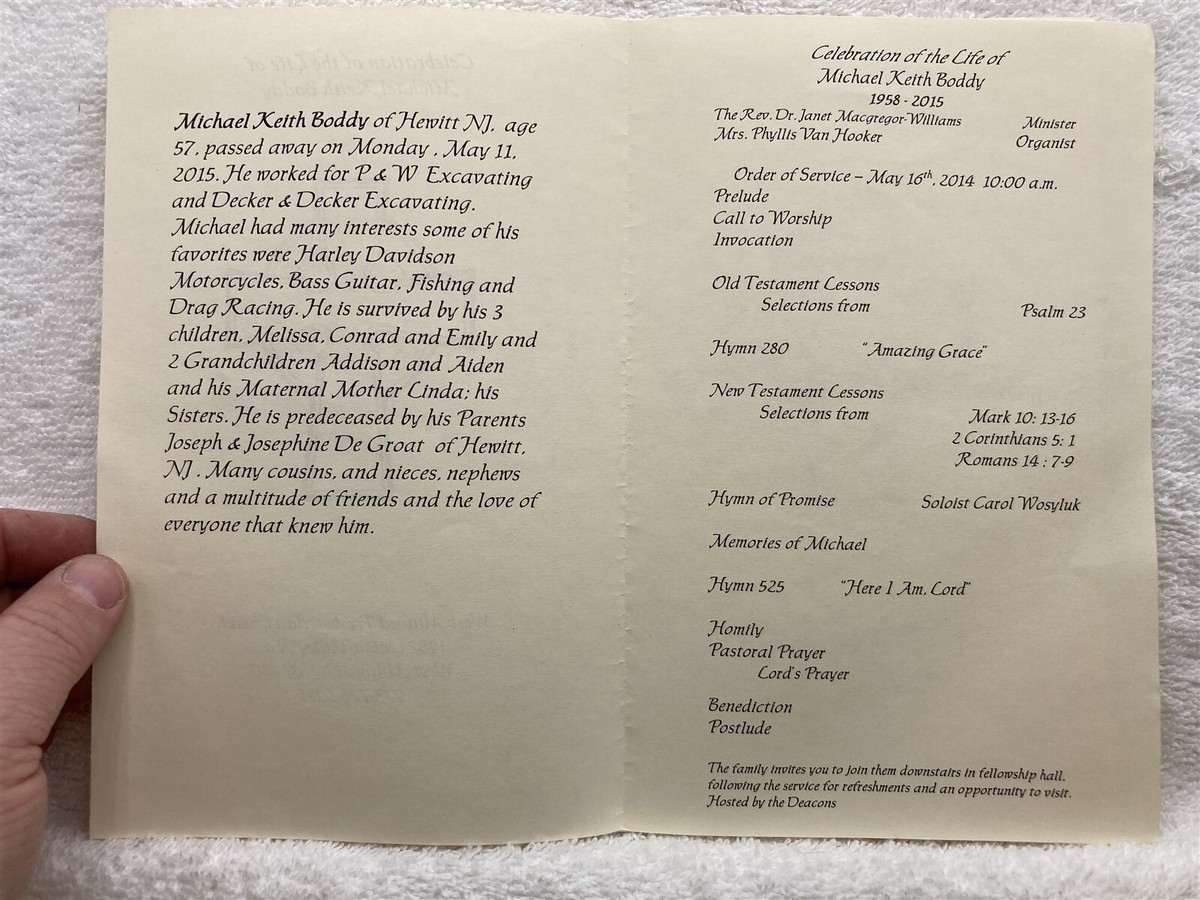 Michael Keith Boddy of Hewitt NJ, age
57, passed away on Monday , May 11,
2015. He worked for P & W Excavating
and Decker & Decker Excavating.
Michael had many interests some of his
favorites were Harley Davidson
Motorcycles, Bass Guitar, Fishing and
Drag Racing. He is survived by his 3
children, Melissa, Conrad and Emily and
2 Grandchildren Addison and Aiden
and his Maternal Mother Linda; his
Sisters. He is predeceased by his Parents
Joseph & Josephine De Groat of Hewitt,
NJ . Many cousins, and nieces, nephews
and a multitude of friends and the love of
everyone that knew him.
Celebration of the Life of
Michael Keith Boddy
1958 - 2015
The Rev. Dr. Janet Macgregor-Williams Minister
Mrs. Phyllis Van Hooker Organist
Order of Service – May 16th, 2014 10:00 a.m.
Prelude
Call to Worship
Invocation
Old Testament Lessons
Selections from Psalm 23
Hymn 280 "Amazing Grace"
New Testament Lessons
Selections from Mark 10: 13-16
2 Corinthians 5: 1
Romans 14 : 7-9
Hymn of Promise Soloist Carol Wosyluk
Memories of Michael
Hymn 525 "Here I Am, Lord"
Homily
Pastoral Prayer
Lord's Prayer
Benediction
Postlude
The family invites you to join them downstairs in fellowship hall,
following the service for refreshments and an opportunity to visit.
Hosted by the Deacons